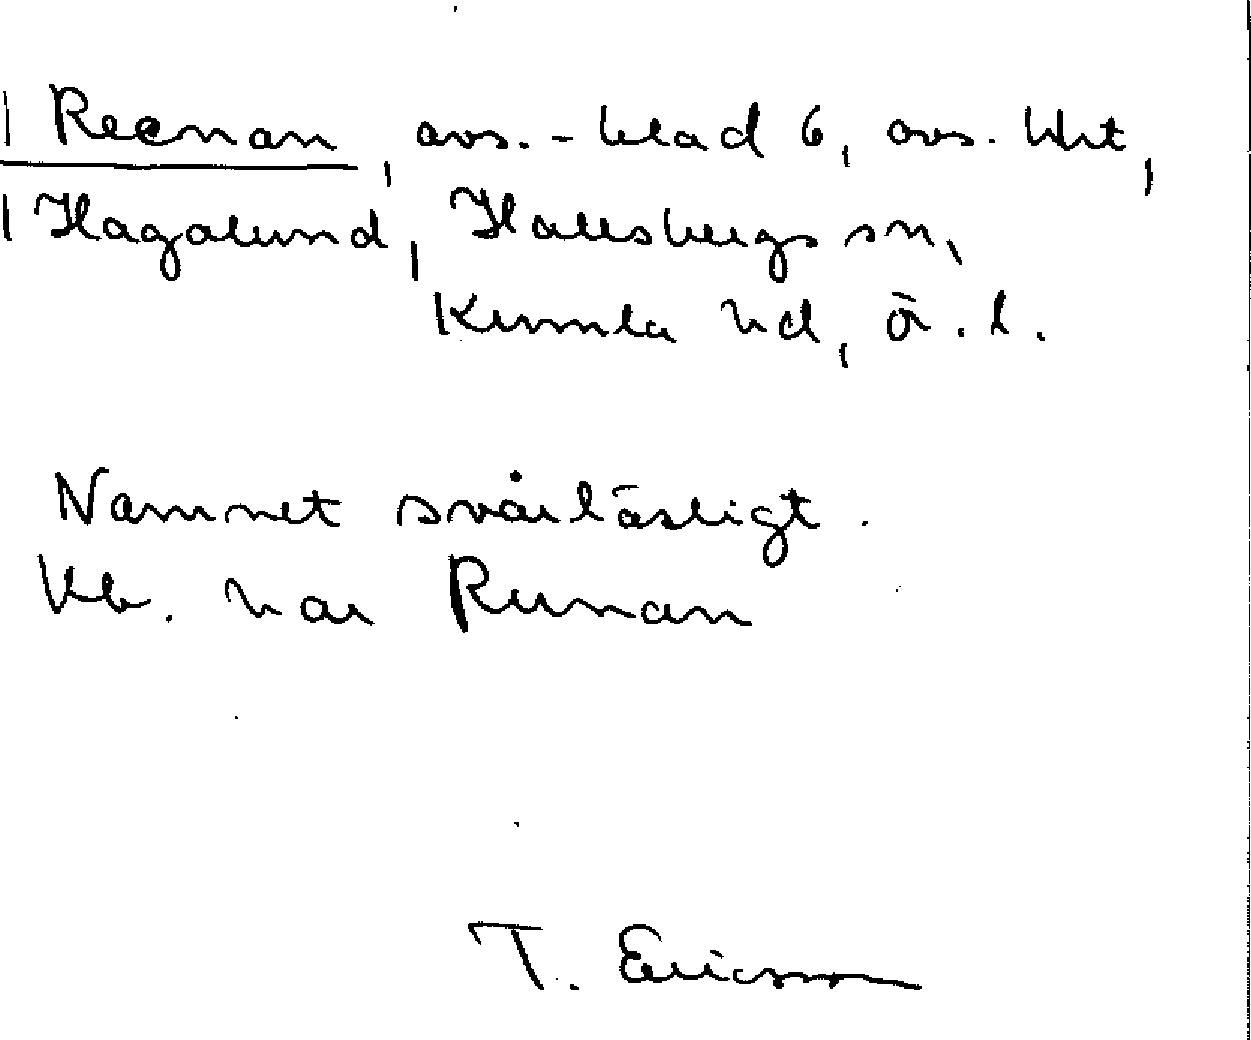 Reenan, avs.-blad 6, avs. tkt,
Hagalund, Hallsbergs sn,
Kumla hd, ö. l.
Namnet svårläsligt.
Kb. har Runan
T. Ericsson